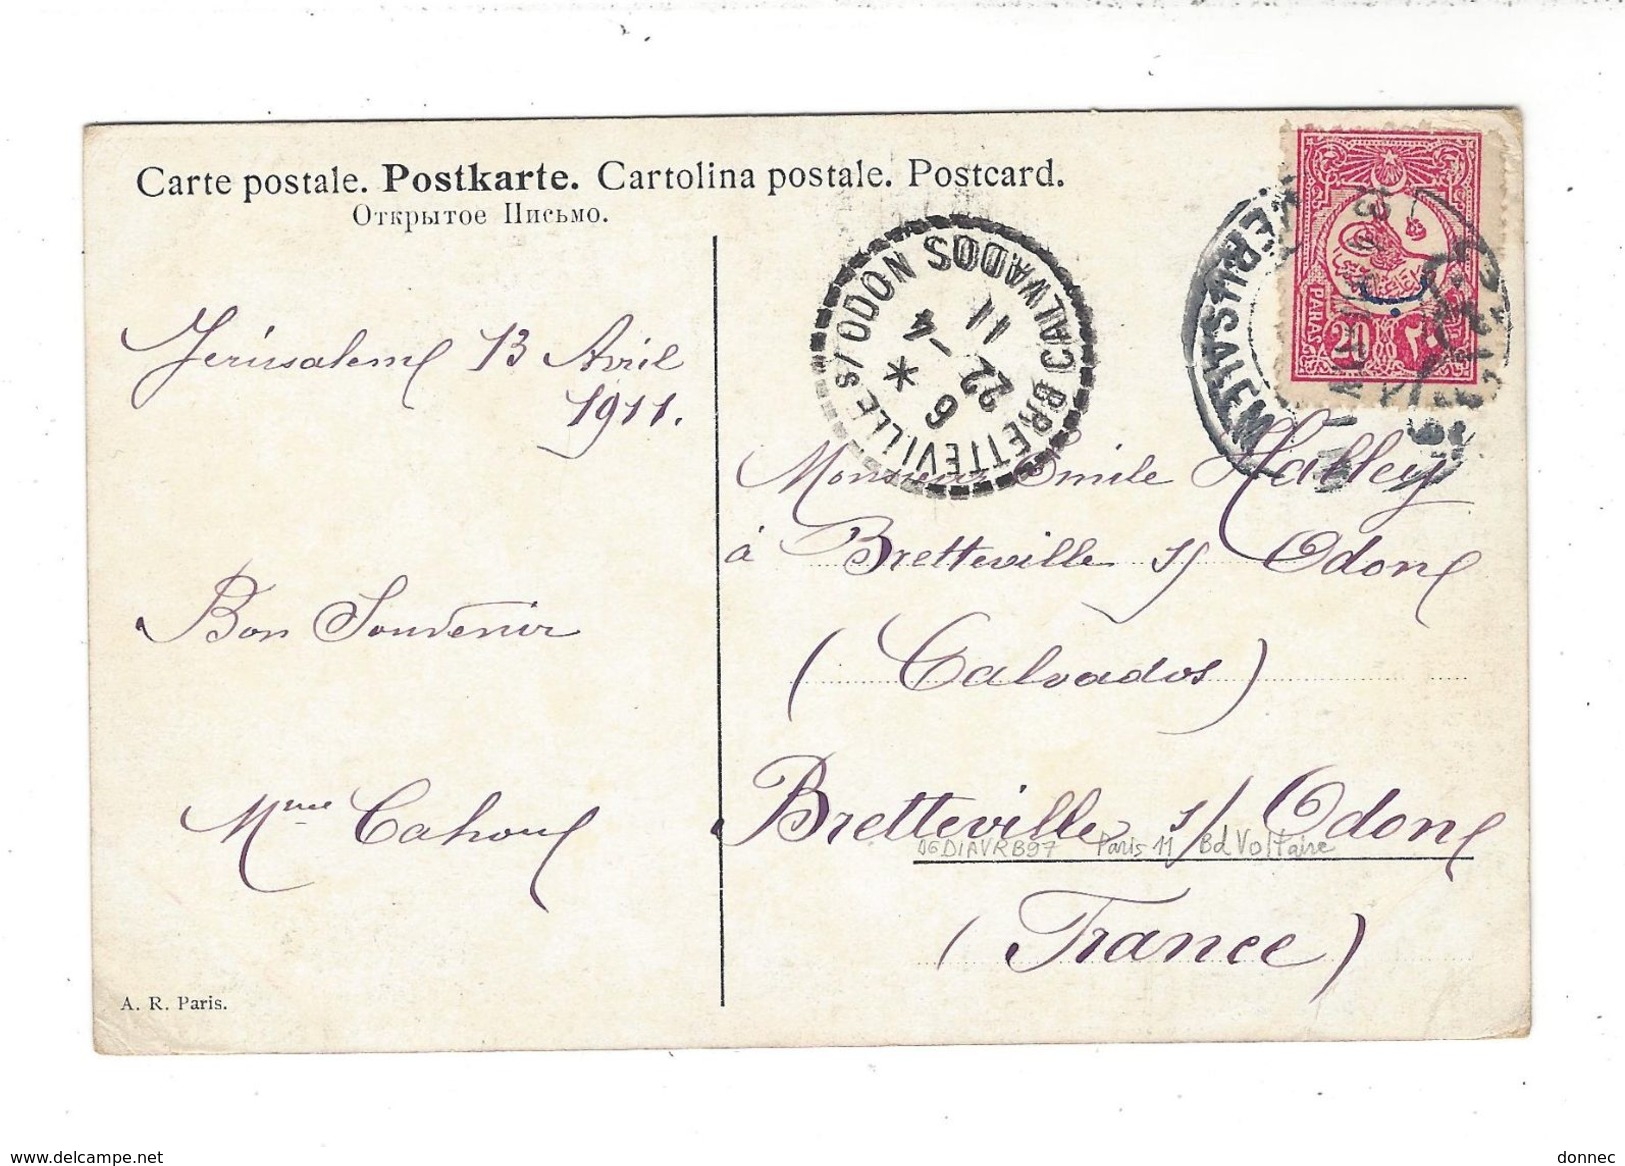 Carte postale. Postkarte. Cartolina postale. Postcard.
Открытое Письмо.
Jérusalem 13 Avril
1911.
Bon Souvenir
Mme Cahour
A. R. Paris.
BRETTEVILLE S/ ODON CALVADOS
6
22 -4
11
PARAS 20 ٢٠
Monsieur Emile Halley
à Bretteville s/ Odon
(Calvados)
Bretteville s/ Odon
06DIAVRB97 Paris 11 Bd Voltaire
(France)
delcampe.net
donnec